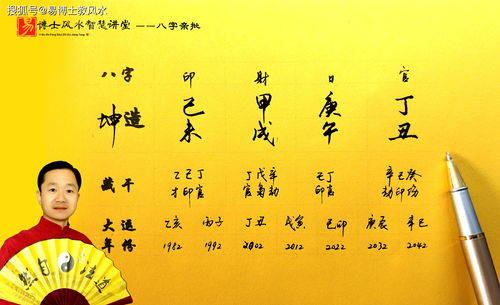 搜狐号@易博士教风水
易 博士风水智慧讲堂 ——八字亲批
八字 印 财 日 官
坤造 己未 甲戌 庚午 丁丑
藏干 乙己丁 丁戊辛 己丁 辛己癸
才印官 官枭劫 印官 劫印伤
大运 乙亥 丙子 丁丑 戊寅 己卯 庚辰 辛巳
年份 1982 1992 2002 2012 2022 2032 2042